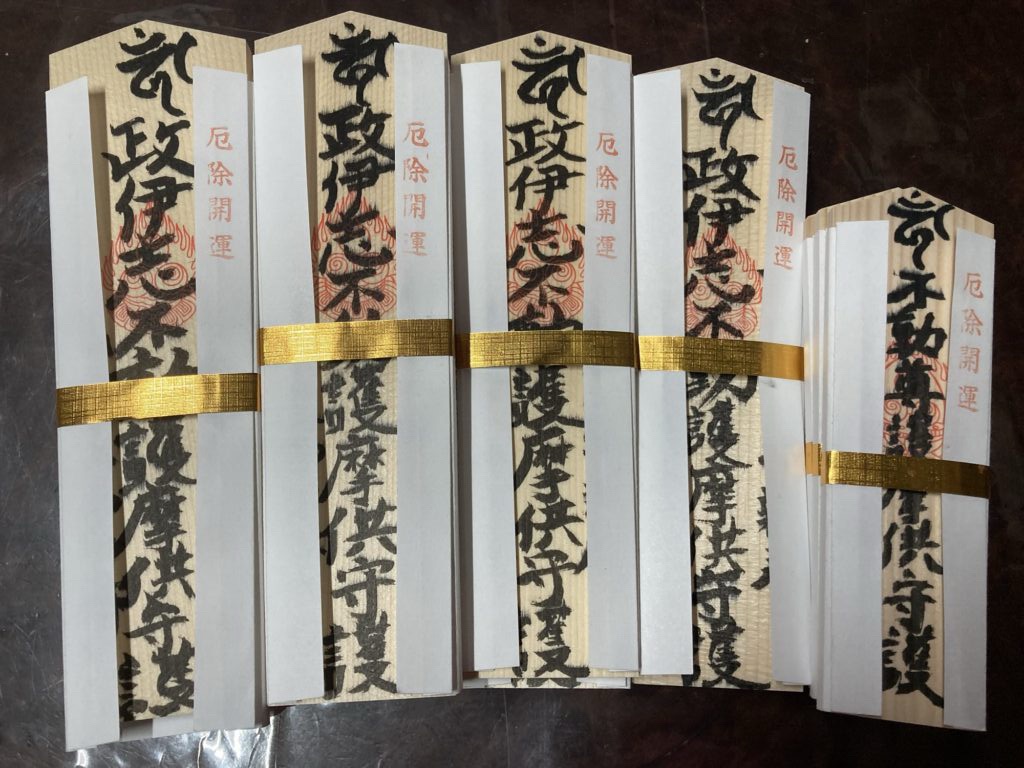 政伊志不
護摩供守護
厄除開運
政伊志不
護摩供守護
厄除開運
政伊志不
護摩供守護
厄除開運
政伊志不動護摩供守護
厄除開運
不動尊護摩供守護
厄除開運